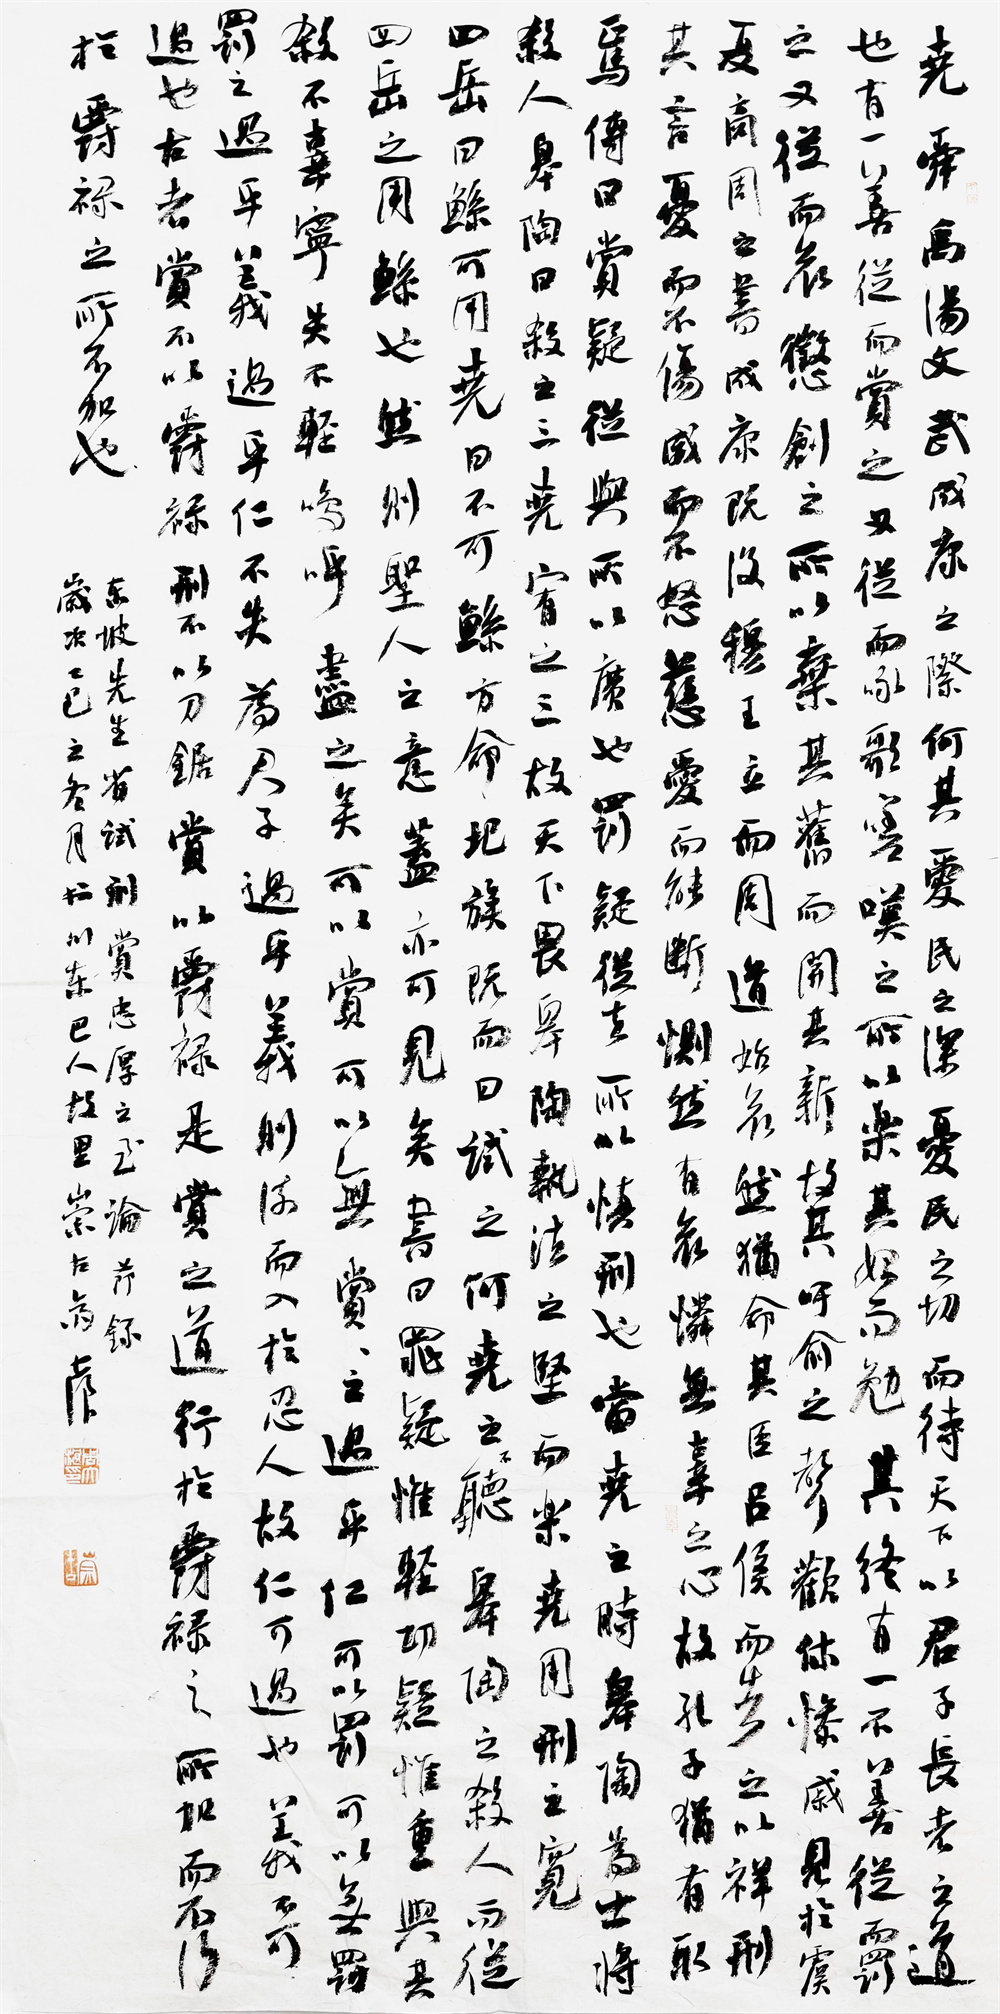 堯舜禹湯文武成康之際何其愛民之深憂民之切而待天下以君子長者之道
也有一善從而賞之又從而詠歌嗟嘆之所以樂其始而勉其終有一不善從而罰
之又從而哀懲創之所以棄其舊而開其新故其吁俞之聲歡休慘戚見於虞
夏商周之書成康既沒穆王立而周道始衰然猶命其臣呂侯而告之以祥刑
其言憂而不傷威而不怒慈愛而能斷惻然有哀憐無辜之心故孔子猶有取
焉傳曰賞疑從與所以廣也罰疑從去所以慎刑也當堯之時皋陶為士將
殺人皋陶曰殺之三堯宥之三故天下畏皋陶執法之堅而樂堯用刑之寬
四岳曰鯀可用堯曰不可鯀方命圮族既而曰試之何堯之不聽皋陶之殺人而從
四岳之用鯀也然則聖人之意蓋亦可見矣書曰罪疑惟輕功疑惟重與其
殺不辜寧失不輕嗚呼盡之矣可以賞可以無賞賞之過乎仁可以罰可以無罰
罰之過乎義過乎仁不失為君子過乎義則流而入於忍人故仁可過也義不可
過也古者賞不以爵祿刑不以刀鋸賞以爵祿是賞之道行於爵祿之所加而不行
於爵祿之所不加也
东坡先生省试刑賞忠厚之至論節錄
歲次乙巳之冬月於川東巴人故里崇占